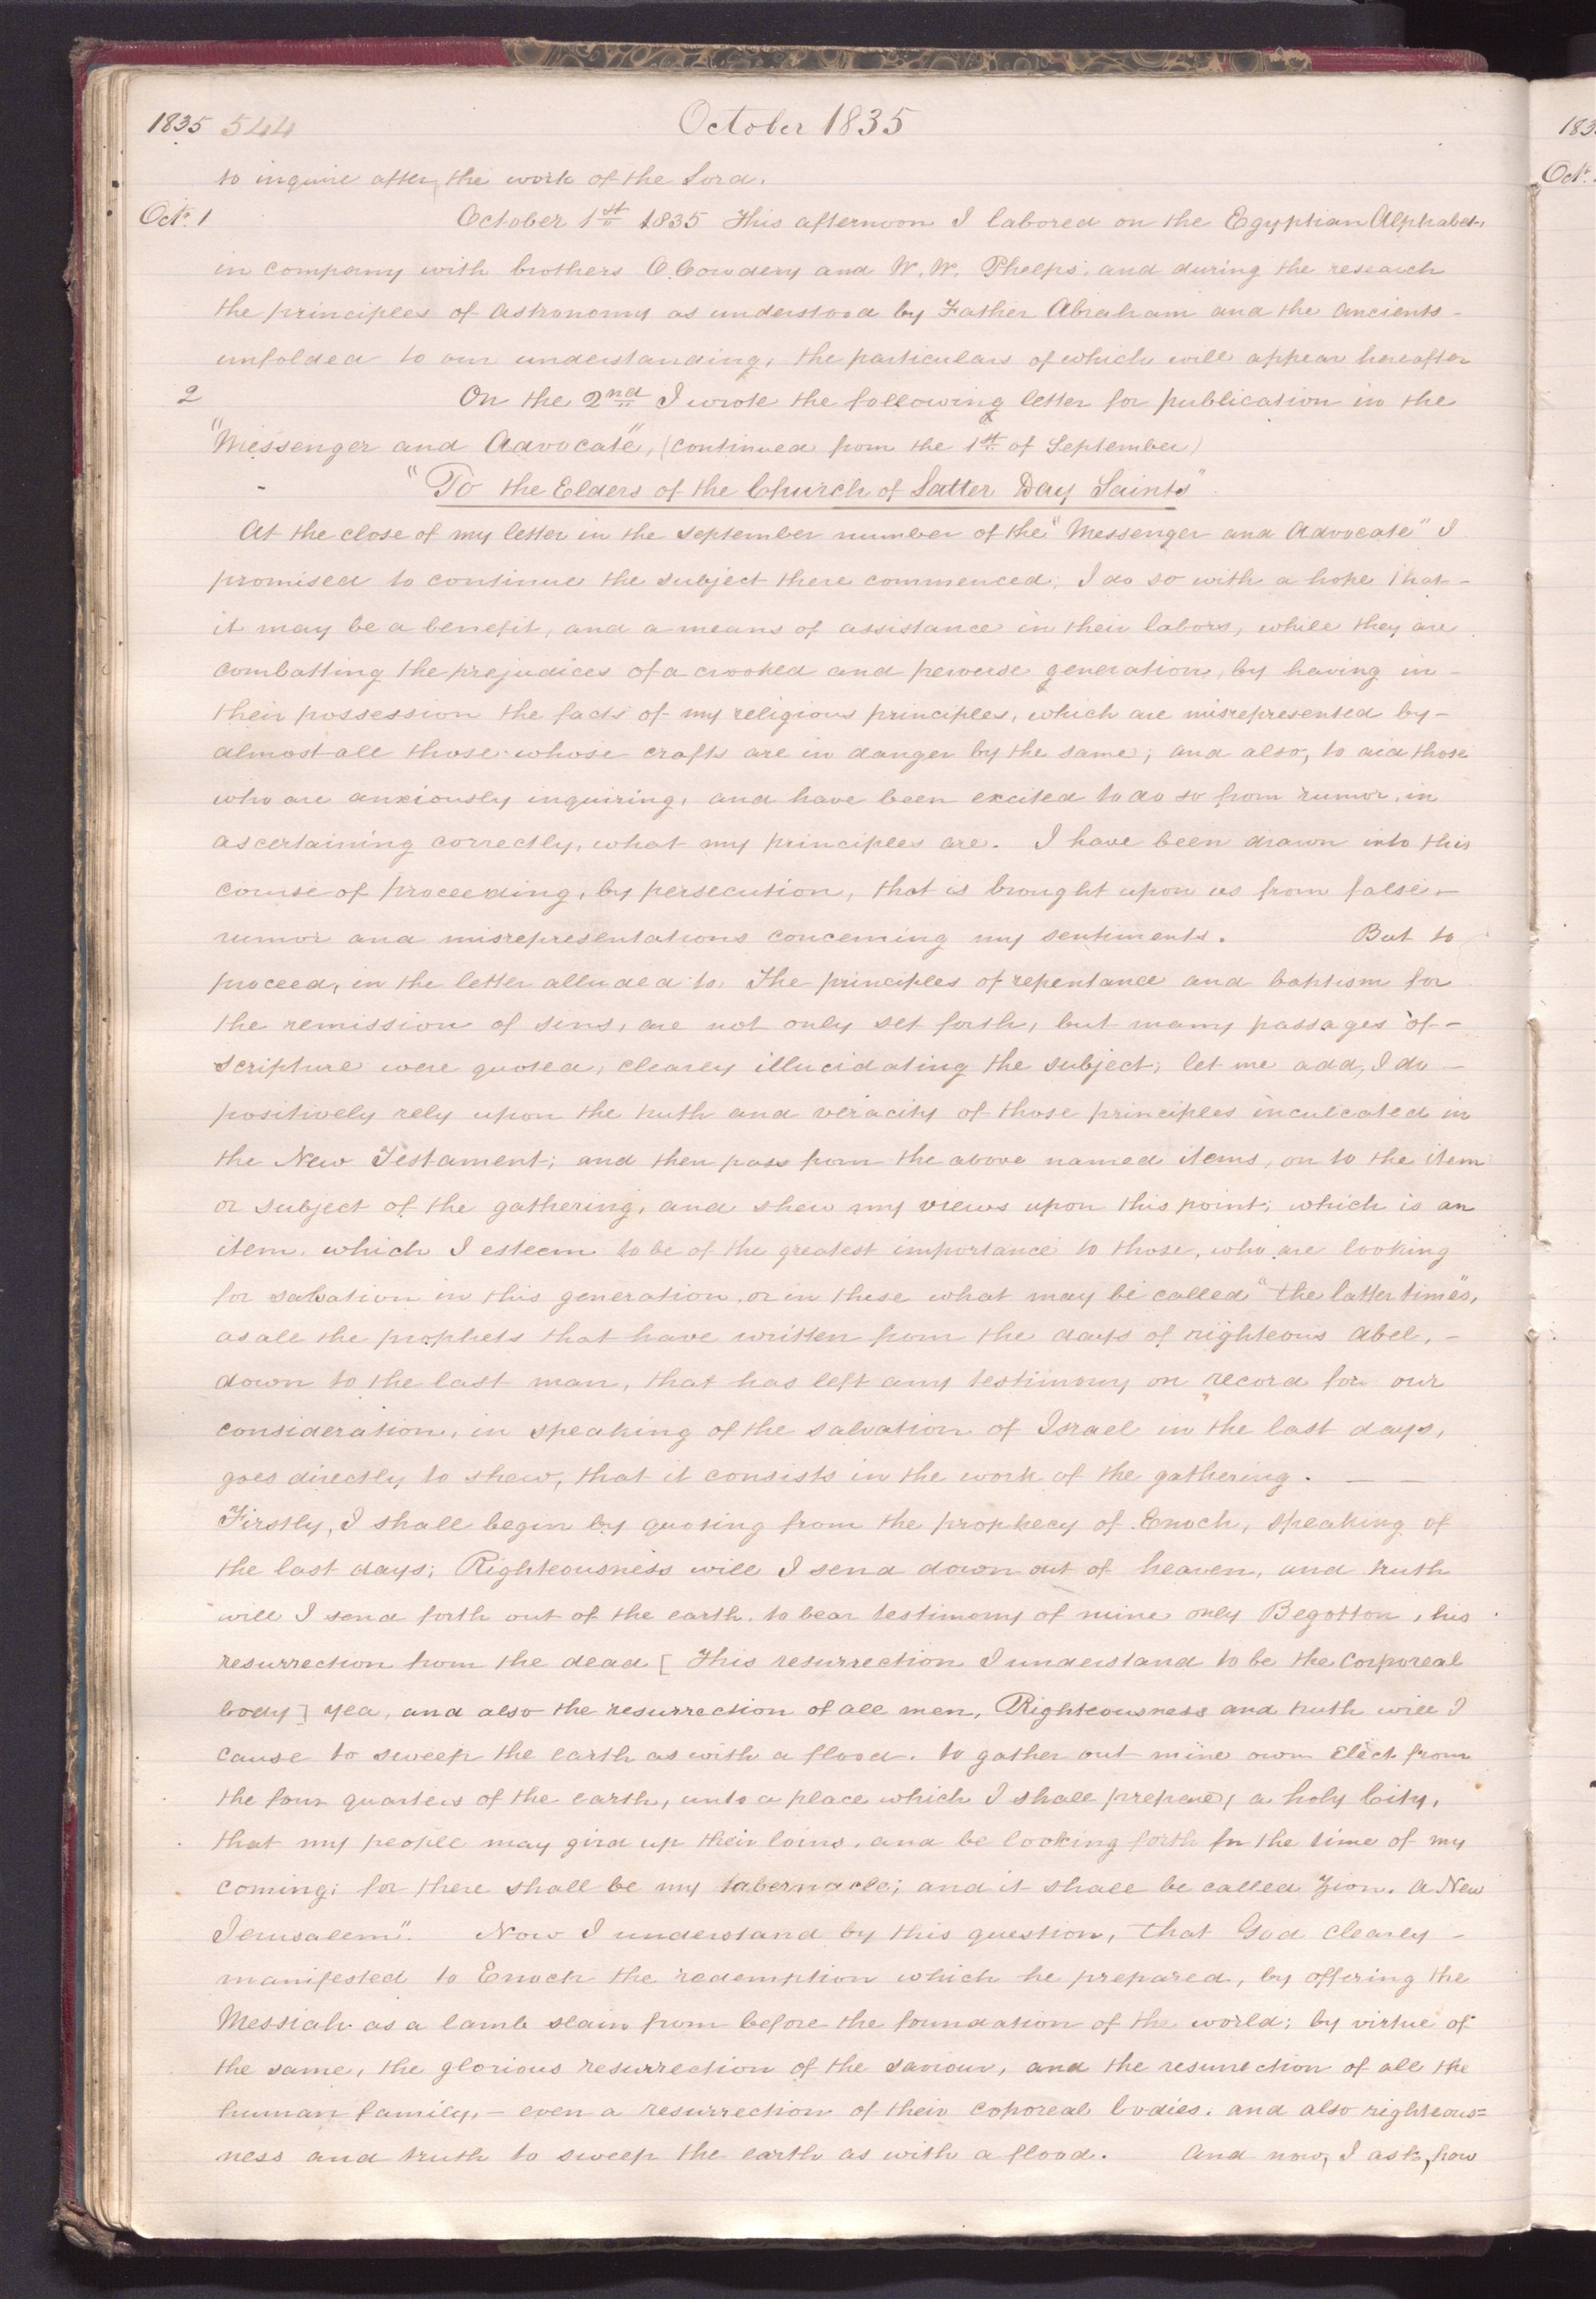 1835 544 October 1835
to inquire after the work of the Lord.
Oct. 1 October 1st 1835 This afternoon I labored on the Egyptian Alphabet,
in company with brothers O. Cowdery and W. W. Phelps, and during the research
the principles of Astronomy as understood by Father Abraham and the Ancients -
unfolded to our understanding, the particulars of which will appear hereafter
2 On the 2nd I wrote the following letter for publication in the
"Messenger and Advocate", (continued from the 1st of September)
"To the Elders of the Church of Latter Day Saints"
At the close of my letter in the September number of the "Messenger and Advocate" I
promised to continue the subject there commenced; I do so with a hope that -
it may be a benefit, and a means of assistance in their labors, while they are
combatting the prejudices of a crooked and perverse generation, by having in -
their possession the facts of my religious principles, which are misrepresented by -
almost all those whose crafts are in danger by the same; and also, to aid those
who are anxiously inquiring, and have been excited to do so from rumor, in
ascertaining correctly, what my principles are. I have been drawn into this
course of proceeding, by persecution, that is brought upon us from false -
rumor and misrepresentations concerning my sentiments. But to
proceed, in the letter alluded to, The principles of repentance and baptism for
the remission of sins, are not only set forth, but many passages of -
scripture were quoted, clearly illucidating the subject; let me add, I do -
positively rely upon the truth and veracity of those principles inculcated in
the New Testament; and then pass from the above named items, on to the item
or subject of the gathering, and shew my views upon this point; which is an
item, which I esteem to be of the greatest importance to those, who are looking
for salvation in this generation, or in these what may be called "the latter times",
as all the prophets that have written from the days of righteous Abel, -
down to the last man, that has left any testimony on record for our
consideration, in speaking of the salvation of Israel in the last days,
goes directly to shew, that it consists in the work of the gathering. —
Firstly, I shall begin by quoting from the prophecy of Enoch, speaking of
the last days; Righteousness will I send down out of heaven, and truth
will I send forth out of the earth, to bear testimony of mine only Begotton, his
resurrection from the dead [This resurrection I understand to be the corporeal
body] yea, and also the resurrection of all men, Righteousness and truth will I
cause to sweep the earth as with a flood. to gather out mine own Elect from
the four quarters of the earth, unto a place which I shall prepare; a holy City,
that my people may gird up their loins, and be looking forth for the time of my
coming; for there shall be my tabernacle; and it shall be called Zion. a New
Jerusalem". Now I understand by this question, that God clearly -
manifested to Enoch the redemption which he prepared, by offering the
Messiah as a lamb slain from before the foundation of the world; by virtue of
the same, the glorious resurrection of the saviour, and the resurrection of all the
human family, - even a resurrection of their coporeal bodies. and also righteous=
ness and truth to sweep the earth as with a flood. And now, I ask, how
183
Oct.